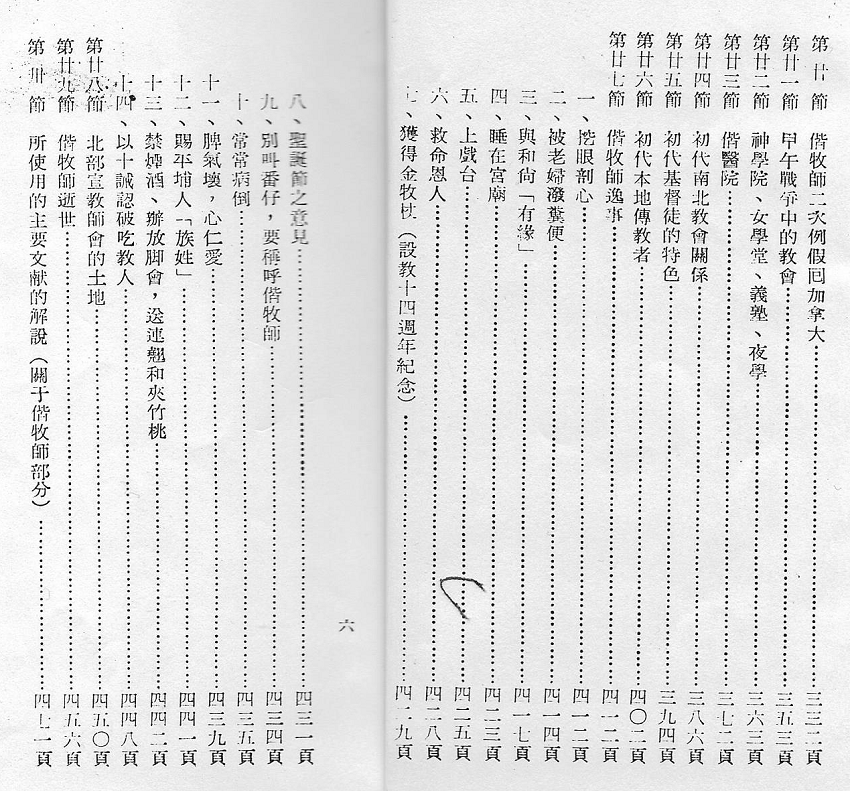 第廿節 偕牧師二次例假囘加拿大……三三二頁
第廿一節 甲午戰爭中的教會……三五三頁
第廿二節 神學院、女學堂、義塾、夜學……三六三頁
第廿三節 偕醫院……三七二頁
第廿四節 初代南北教會關係……三八六頁
第廿五節 初代基督徒的特色……三九四頁
第廿六節 初代本地傳教者……四〇二頁
第廿七節 偕牧師逸事……四一二頁
一、挖眼剖心……四一二頁
二、被老婦潑糞便……四一四頁
三、與和尙「有緣」……四一七頁
四、睡在宮廟……四二三頁
五、上戲台……四二五頁
六、救命恩人……四二八頁
七、獲得金牧杖（設教十四週年紀念）……四二九頁
八、聖誕節之意見……四三一頁
九、別叫番仔，要稱呼偕牧師……四三四頁
十、常常病倒……四三五頁
十一、脾氣壞，心仁愛……四三九頁
十二、賜平埔人「族姓」……四四一頁
十三、禁煙酒、辦放脚會，送連翹和夾竹桃……四四二頁
十四、以十誡認破吃教人……四四八頁
第廿八節 北部宣教師會的土地……四五〇頁
第廿九節 偕牧師逝世……四五六頁
第卅節 所使用的主要文献的解說（關于偕牧師部分）……四七一頁
六